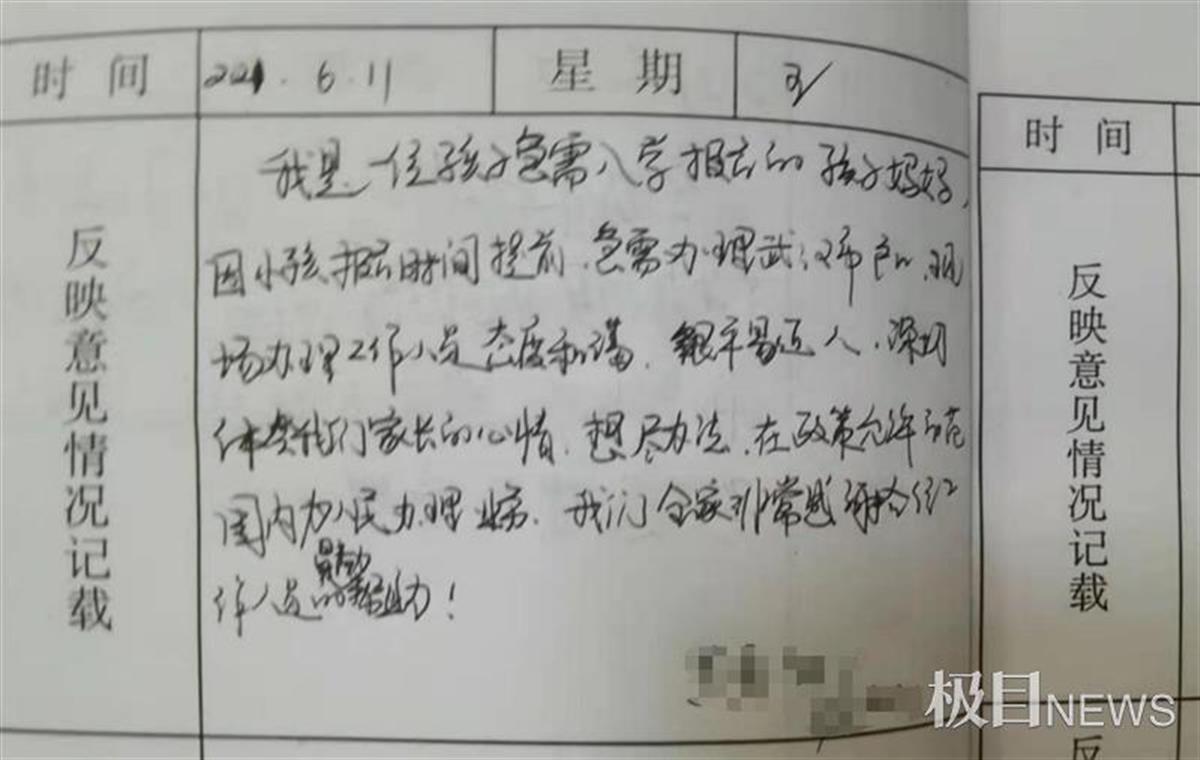 时间 221.6.11 星期 五
反映意见情况记载
我是一位孩子急需入学报名的孩子妈妈,
因小孩报名时间提前,急需办理武汉市户口,现
场办理工作人员态度和蔼,平易近人,深切
体会我们家长的心情,想尽办法,在政策允许范
围内为人民办理业务,我们全家非常感谢
作人员的帮助!
时间
反映意见情况记载
反
极目NEWS